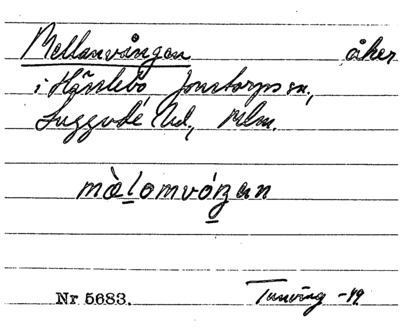 Mellanvången åker
i Hässlebo Jonstorps sn,
Luggude hd, Mlm.
mà̱lomvóŋ̱en
Nr 5683. Tunving -49